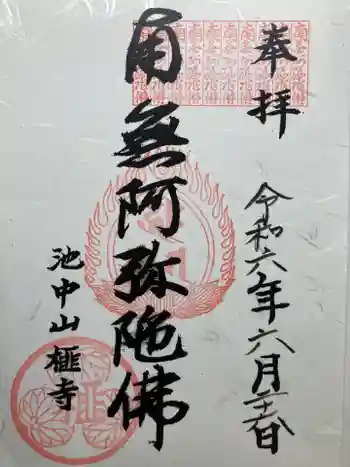 奉拝
令和六年六月二十六日
南無阿弥陀佛
池中山榧寺